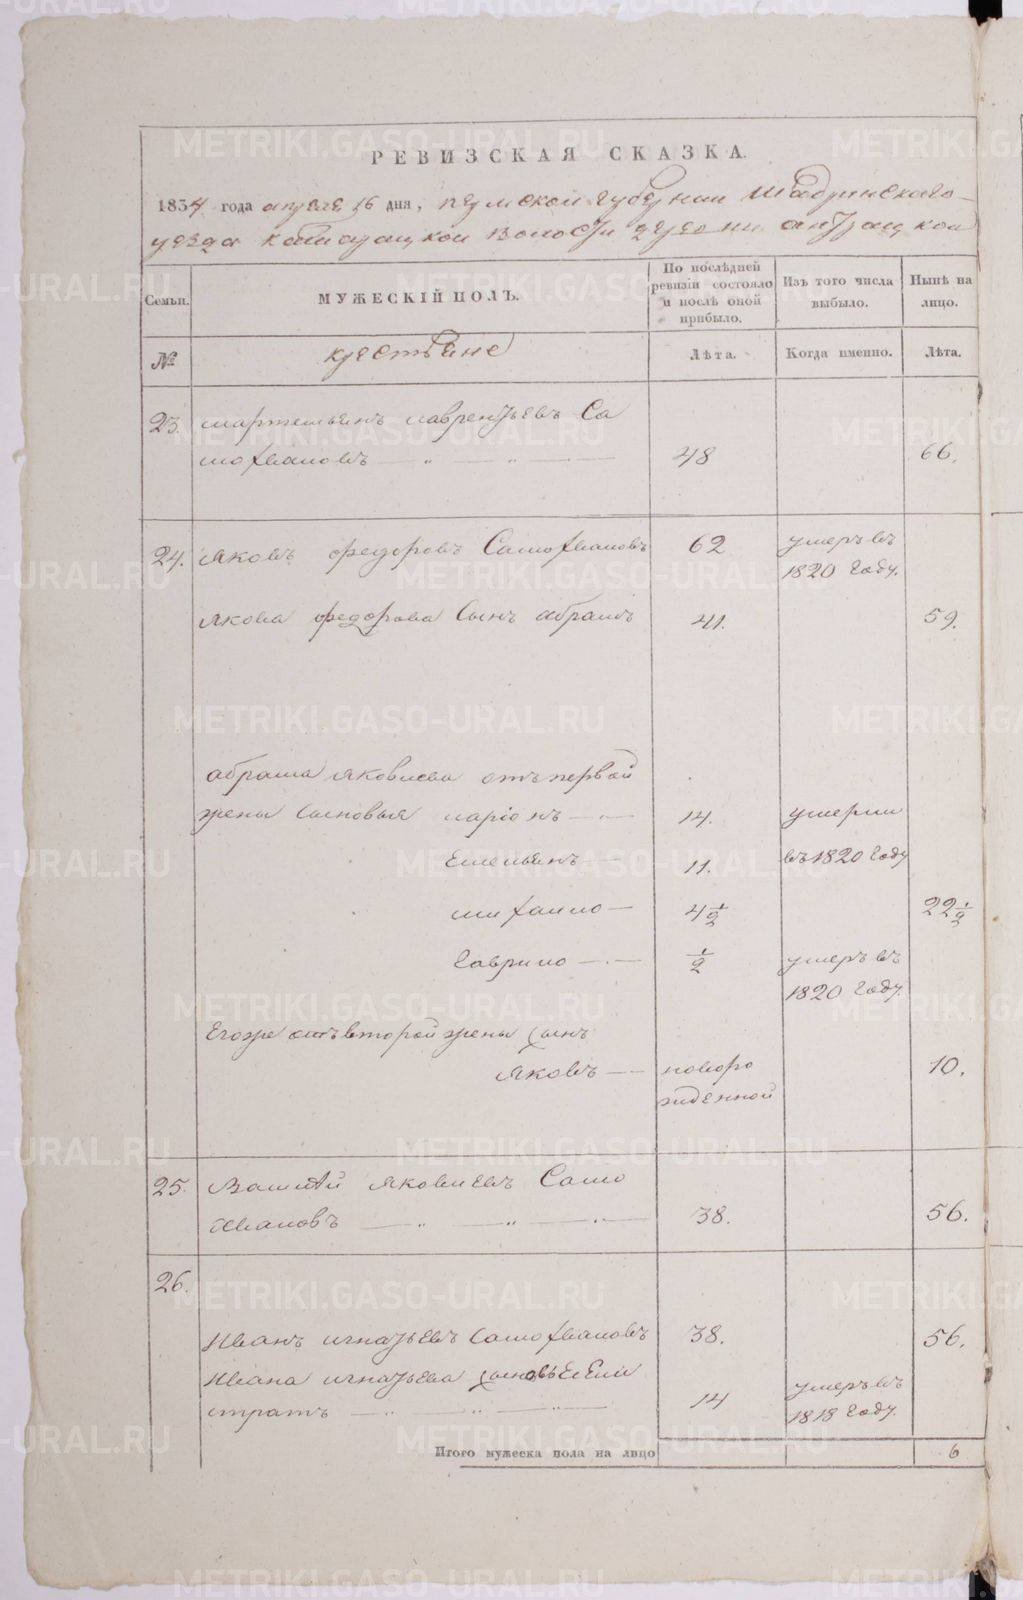 РЕВИЗСКАЯ СКАЗКА.
1834 года апреля 16 дня, пермской губернии Шадринскаго
уезда волости деревни
Семьи.
МУЖЕСКІЙ ПОЛЪ.
По послѣдней ревизіи состояло и послѣ оной прибыло.
Изъ того числа выбыло.
Нынѣ на лицо.
№
крестьяне
Лѣта.
Когда именно.
Лѣта.
23. мартемьянъ лаврентьевъ Са
мохваловъ 48 66.
24. яковъ федоровъ Самохваловъ 62 умеръ въ
1820 году.
якова федорова Сынъ абрамъ 41. 59.
абрама яковлева отъ первой
жены Сыновья ларіонъ 14. умерли
Емельянъ 11. въ 1820 году
михайло 4½ 22½
Гаврило ½ умеръ въ
1820 году.
Егоже отъ второй жены сынъ
яковъ новоро 10.
жденной
25. Василій яковлевъ Само
хваловъ 38. 56.
26.
Иванъ игнатьевъ Самохваловъ 38. 56.
Ивана игнатьева сыновья Ели
стратъ 14 умеръ въ
1818 году.
Итого мужеска пола на лицо 6
METRIKI.GASO-URAL.RU